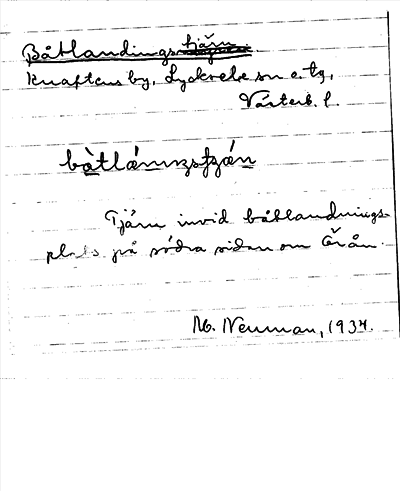 Båtlandingstjärn
Knaftens by, Lycksele sn o. tg,
Västerb. l.
båtlánnɪzstjæ̀n
Tjärn invid båtlandnings-
plats på södra sidan om Örån.
M. Neuman, 1934.